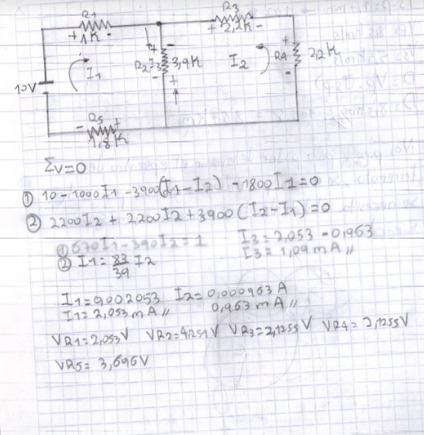 R1
R3
+ 1K -
+ 2,2K -
10V
I1
R2
I3
3,9K
I2
R4
2,2K
R5
- +
1,8K
ΣV=0
① 10-1000I1-3900(I1-I2)-1800I1=0
② 2200I2+2200I2+3900(I2-I1)=0
① 670I1-390I2=1
I3=2,053-0,963
② I1=83/39 I2
I3=1,09mA //
I1=0,002053 I2=0,000963A
I1=2,053mA // 0,963mA //
VR1=2,053V VR2=4,251V VR3=2,1255V VR4=2,1255V
VR5=3,696V